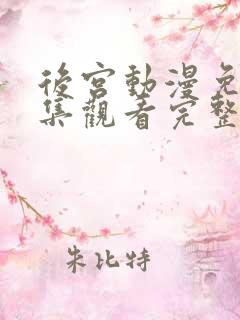 後宮動漫免
集觀看完整
朱比特